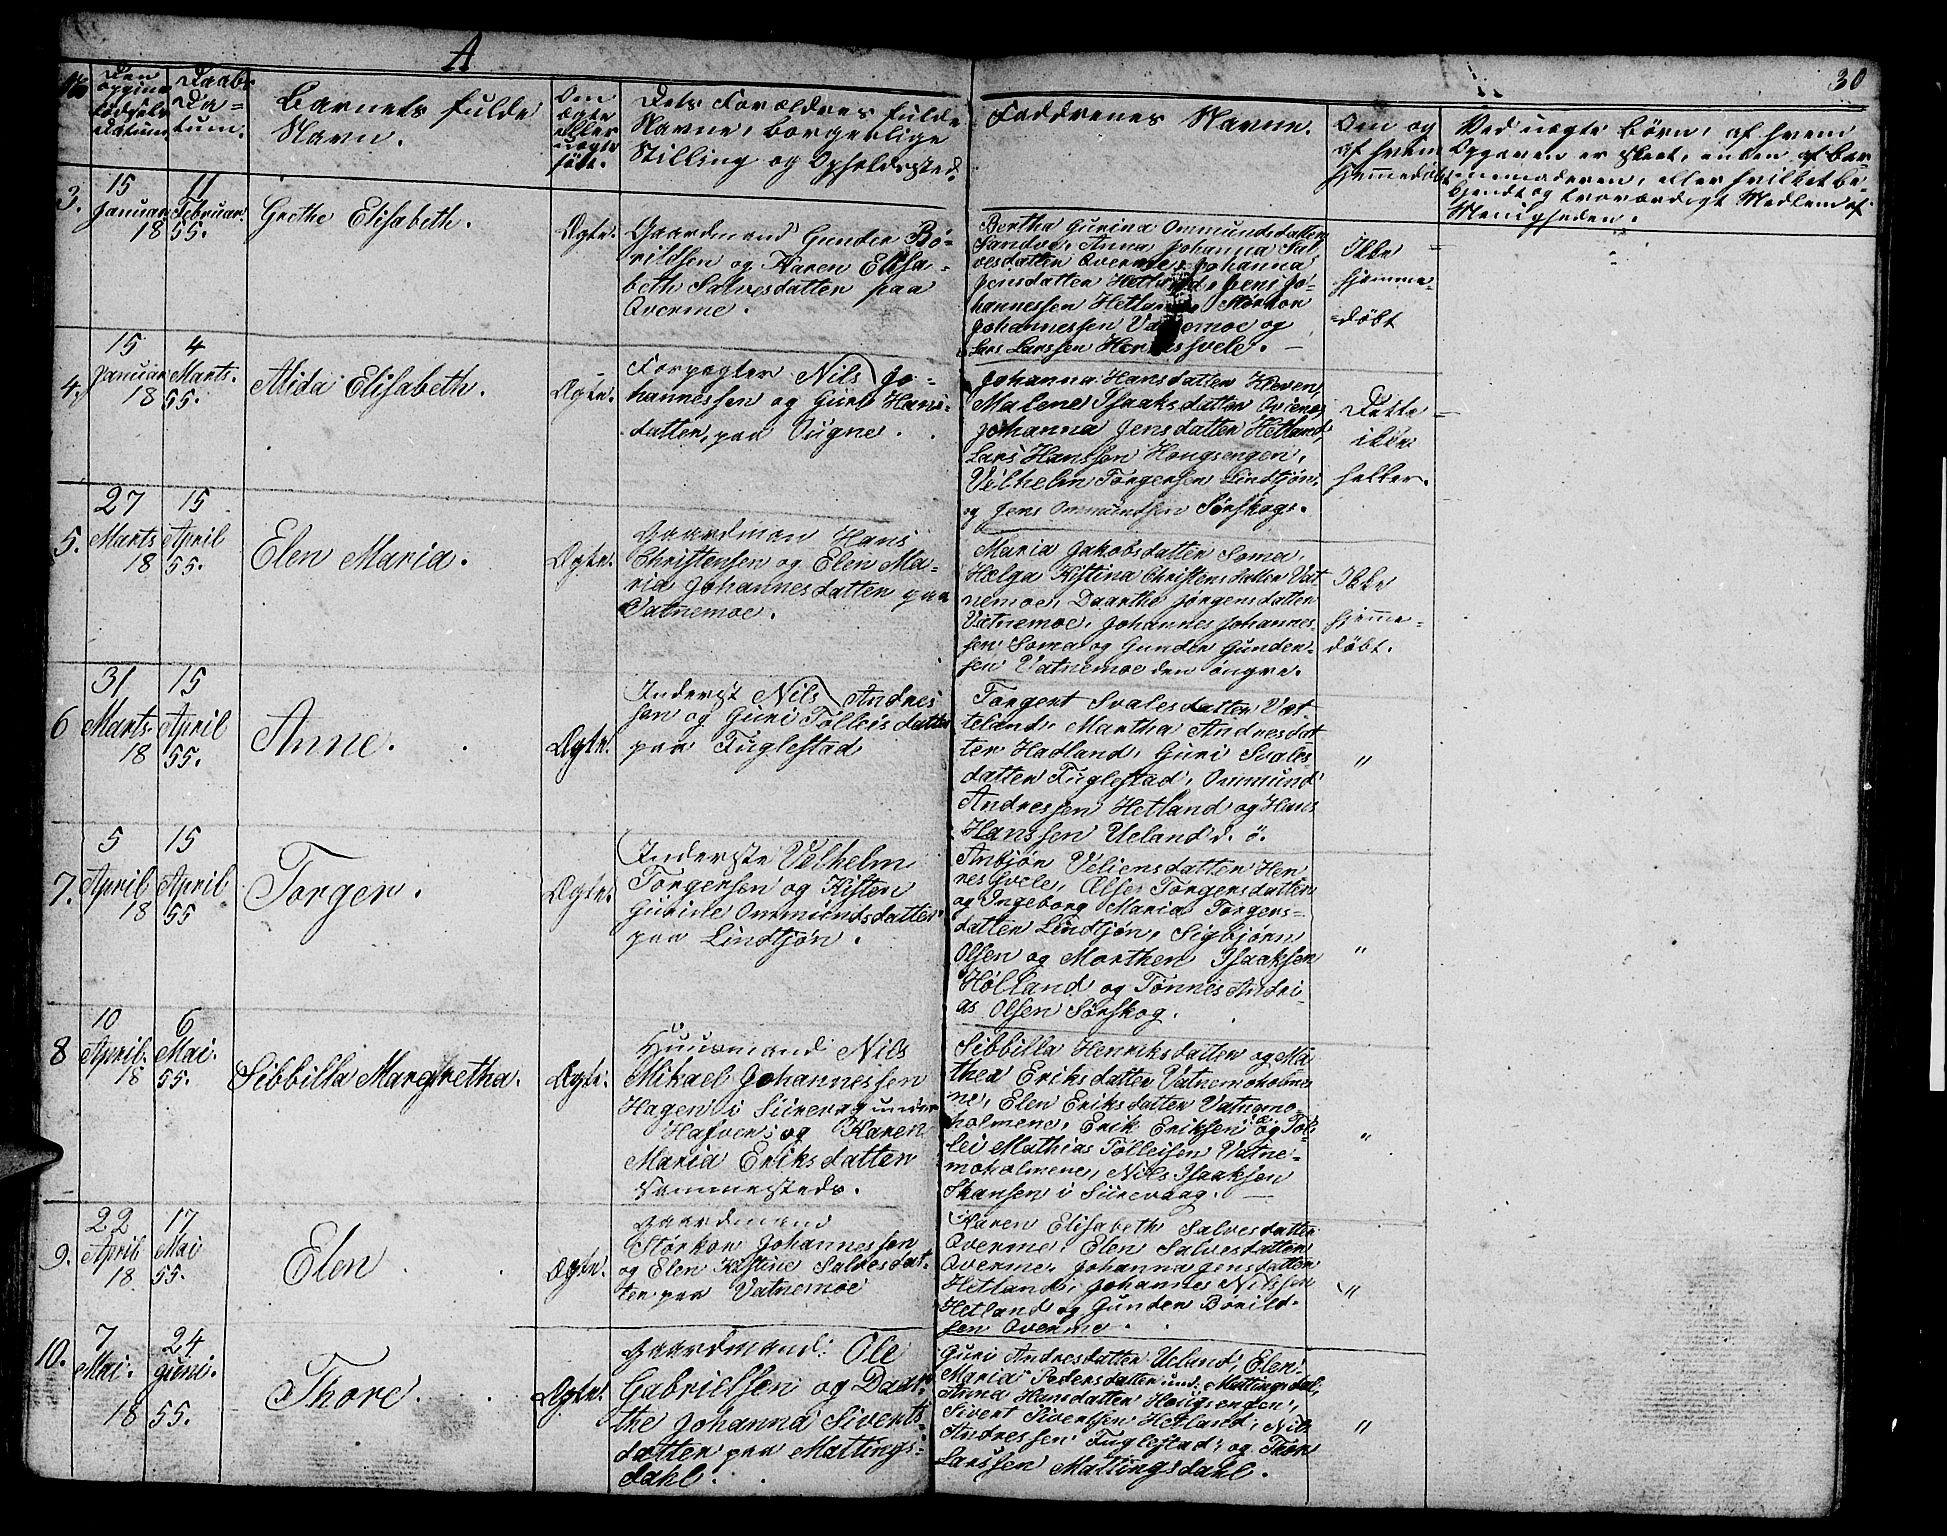 A
30
No
Den
opgivne
Fødsels
datum.
Daabs
Da-
tum.
Barnets fulde
Navn.
Om
ægte
eller
uægte
født.
Dets Forældres fulde
Navne, borgerlige
Stilling og Opholdssted.
Faddrenes Navne.
Om og
af hvem
hjemmedøbt
Ved uægte Børn, af hvem
Opgaven er skeet, enten af Bar-
nemoderen, eller hvilket be-
kjendt og troværdigt Medlem af
Menigheden.
3.
15
Januar
18
11
Februar.
55.
Grethe Elisabeth.
Ægte.
Gaardmand Gunder Bø-
rildsen og Karen Elisa-
beth Salvesdatter paa
Qverme.
Bertha Gurina Ommundsdatter
Sandve, Anna Johanna Sal
vesdatter Qverme, Johanna
Jensdatter Hetland, Jens Jo-
hannessen Hetland, Størkor
Johannessen Vatnemoe og
Lars Larssen Hennesvele.
Ikke
hjemme-
døbt
4.
15
Januar
18
4
Marts.
55.
Alida Elisabeth.
Ægte.
Forpagter Nils Jo-
hannessen og Guri Hans-
datter, paa Sugne.
Johanna Hansdatter Kleven,
Malene Isaaksdatter
Johanna Jensdatter Hetland,
Lars Hanssen Hougsengen,
Velhelm Torgersen Lindtjøn,
og Jens Ommundsen Sørskog.
Dette
ikke
heller.
5.
27
Marts
18
15
April
55.
Elen Maria.
Ægte.
Gaardman Hans
Christensen og Elen Ma-
ria Johannesdatter paa
Vatnemoe.
Maria Jakobsdatter Soma,
Helga Kistina Christensdatter Vat
nemoe, Daarthe Jørgensdatter
Vatnemoe, Johannes Johannes-
sen Soma og Gunder Gunder-
sen Vatnemoe den öngre.
Ikke
hjemme-
døbt.
6
31
Marts
18
15
April
55.
Anne.
Ægte.
Inderst Nils Andres
sen og Guri Tolleisdatter
paa Fuglestad
Torgert Svalesdatter Vat
teland, Martha Andresdat
ter Hadland, Guri Svales-
datter Fuglestad, Ommund
Andressen Hetland og Hans
Hanssen Ueland d. ö.
"
7.
5
April
18
15
April
55
Torger.
Ægte.
Inderste Velhelm
Torgersen og Kisten
Gurine Ommundsdatter
paa Lindtjøn.
Anbjør Veliensdatter Hen
nesvele, Else Torgersdatter
og Ingeborg Maria Torgers-
datter Lindtjøn, Sigbjørn
Olsen og Morthen Isaaksen
Hølland og Tønnes Andri-
as Olsen Sørskog.
"
8
10
April.
18
6
Mai.
55.
Sibbilla Margretha.
Ægte.
Huusmand Nils
Mikael Johannessen
Hagen i Siirevaag under
Hafven, og Karen
Maria Eriksdatter
sammesteds.
Sibbilla Henriksdatter og Ma-
thea Eriksdatter Vatnemoholme
ne, Elen Eriksdatter Vatnemo-
holmene, Erik Eriksen og Tol-
lei Mathias Tolleisen Vatne-
moholmene, Nils Isaaksen
Skansen i Siirevaag.
"
9.
22
April
18
17
Mai
55.
Elen
Ægte.
Gaardmand
Størkor Johannessen
og Elen Kistine Salvesdat-
ter paa Vatnemoe
Karen Elisabeth Salvesdatter
Qverme, Elen Salvesdatter
Qverme, Johanna Jensdatter
Hetland, Johannes Nilssen
Hetland og Gunder Børild-
sen Qverme.
"
10.
7
Mai.
18
24
Juni.
55.
Thore.
Ægte.
Gaardmand Ole
Gabrielsen og Daar-
the Johanna Siverts-
datter paa Mattings-
dahl.
Guri Andresdatter Ueland, Elen
Maria Pedersdatter und. Mattingsdal,
Anna Hansdatter Hougsenden,
Sivert Sivertsen Hetland, Nils
Andressen Fuglestad, og Thore
Larssen Mattingsdahl.
"